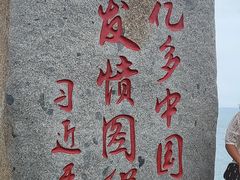 亿多中国
发愤图
习近平